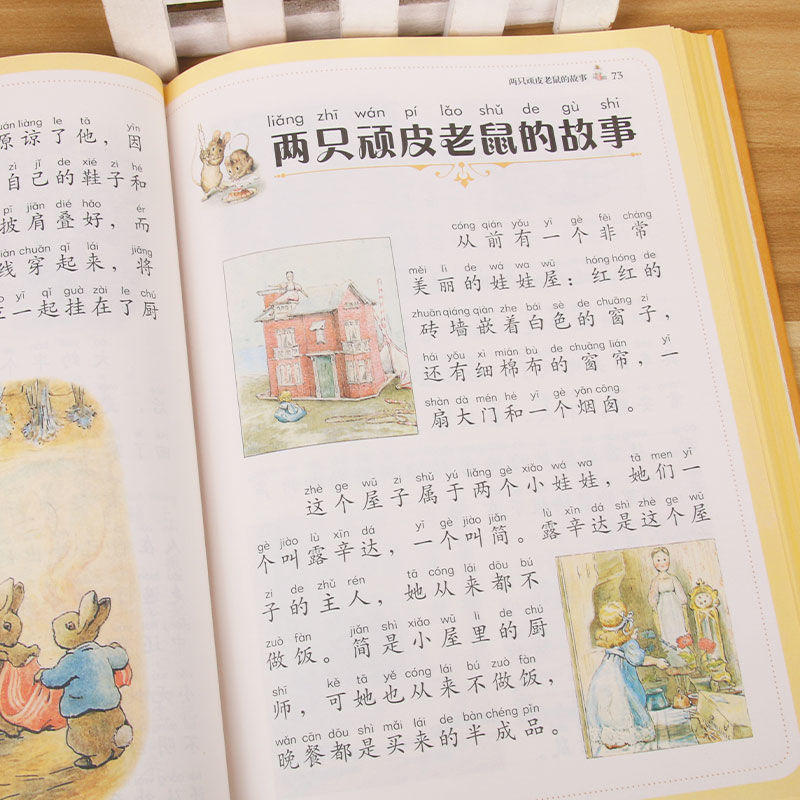 uán liàng le tā yīn
原谅了他，因
zì jǐ de xié zi hé
自己的鞋子和
pī jiān dié hǎo ér
披肩叠好，而
chuān qǐ lái jiāng
线穿起来，将
yì qǐ guà zài le chú
一起挂在了厨
两只顽皮老鼠的故事 73
liǎng zhī wán pí lǎo shǔ de gù shi
两只顽皮老鼠的故事
cóng qián yǒu yī gè fēi cháng
从前有一个非常
měi lì de wá wa wū hóng hóng de
美丽的娃娃屋：红红的
zhuān qiáng qiàn zhe bái sè de chuāng zi
砖墙嵌着白色的窗子，
hái yǒu xì mián bù de chuāng lián yī
还有细棉布的窗帘，一
shàn dà mén hé yī gè yān cōng
扇大门和一个烟囱。
zhè ge wū zi shǔ yú liǎng gè xiǎo wá wa tā men yī
这个屋子属于两个小娃娃，她们一
gè jiào lù xīn dá yī gè jiào jiǎn lù xīn dá shì zhè ge wū
个叫露辛达，一个叫简。露辛达是这个屋
zi de zhǔ rén tā cóng lái dōu bù
子的主人，她从来都不
zuò fàn jiǎn shì xiǎo wū lǐ de chú
做饭。简是小屋里的厨
shī kě tā yě cóng lái bú zuò fàn
师，可她也从来不做饭，
wǎn cān dōu shì mǎi lái de bàn chéng pǐn
晚餐都是买来的半成品。